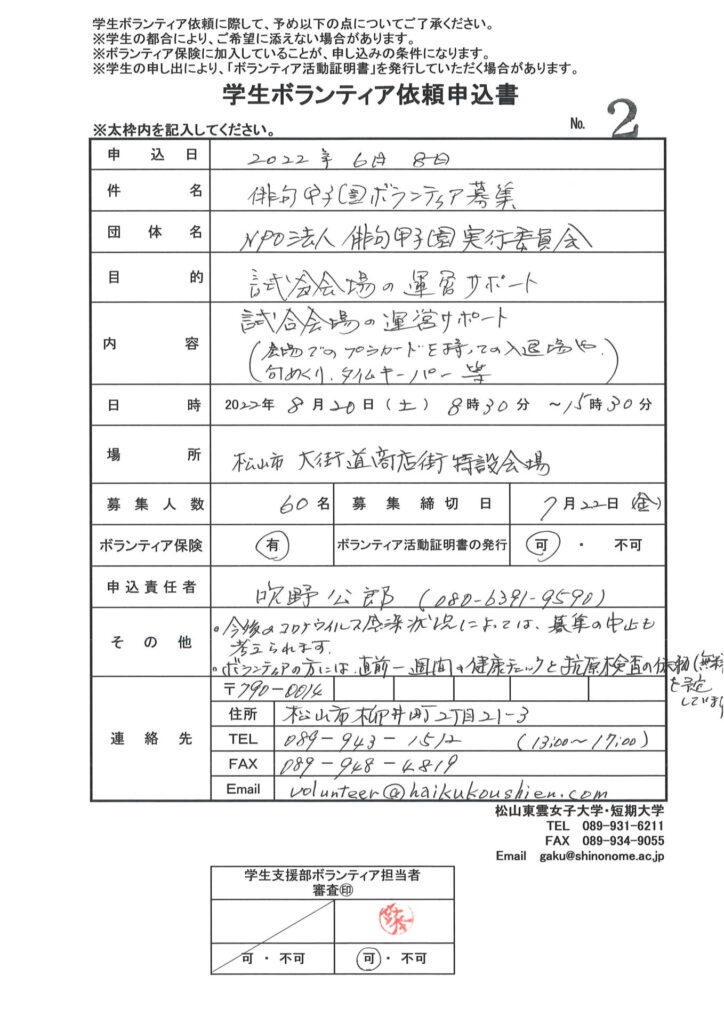 学生ボランティア依頼に際して、予め以下の点についてご了承ください。
※学生の都合により、ご希望に添えない場合があります。
※ボランティア保険に加入していることが、申し込みの条件になります。
※学生の申し出により、「ボランティア活動証明書」を発行していただく場合があります。
学生ボランティア依頼申込書
※太枠内を記入してください。 No. 2
申込日 2022年 6月 8日
件名 俳句甲子園ボランティア募集
団体名 NPO法人 俳句甲子園実行委員会
目的 試合会場の運営サポート
内容 試合会場の運営サポート
(会場でのプラカードを持っての入退場や、
句めくり、タイムキーパー等)
日時 2022年 8月20日(土) 8時30分 ~15時30分
場所 松山市 大街道商店街 特設会場
募集人数 60名 募集締切日 7月22日(金)
ボランティア保険 有 ボランティア活動証明書の発行 可 ・ 不可
申込責任者 吹野公郎 (080-6391-9590)
その他 ・今後のコロナウイルス感染状況によっては、募集の中止も
考えられます。
・ボランティアの方には、直前一週間の健康チェックと抗原検査の依頼(無料)
を予定
しています
連絡先 〒790-0014
住所 松山市柳井町2丁目21-3
TEL 089-943-1512 (13:00~17:00)
FAX 089-948-4819
Email volunteer@haikukoushien.com
松山東雲女子大学・短期大学
TEL 089-931-6211
FAX 089-934-9055
Email gaku@shinonome.ac.jp
学生支援部ボランティア担当者
審査㊞
可 ・ 不可 可 ・ 不可